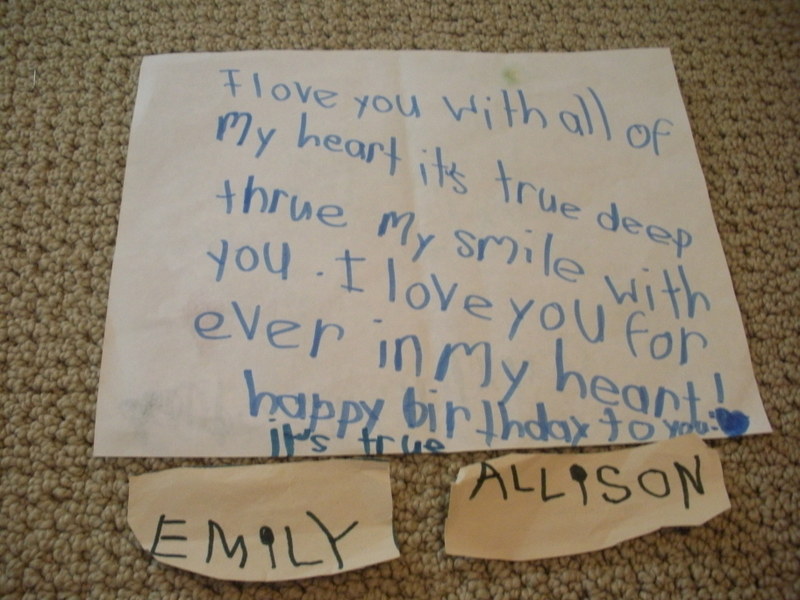 I love you with all of
my heart it's true deep
thrue my smile with
you. I love you for
ever in my heart!
happy birthday to you.
it's true
EMiLY
ALLiSON